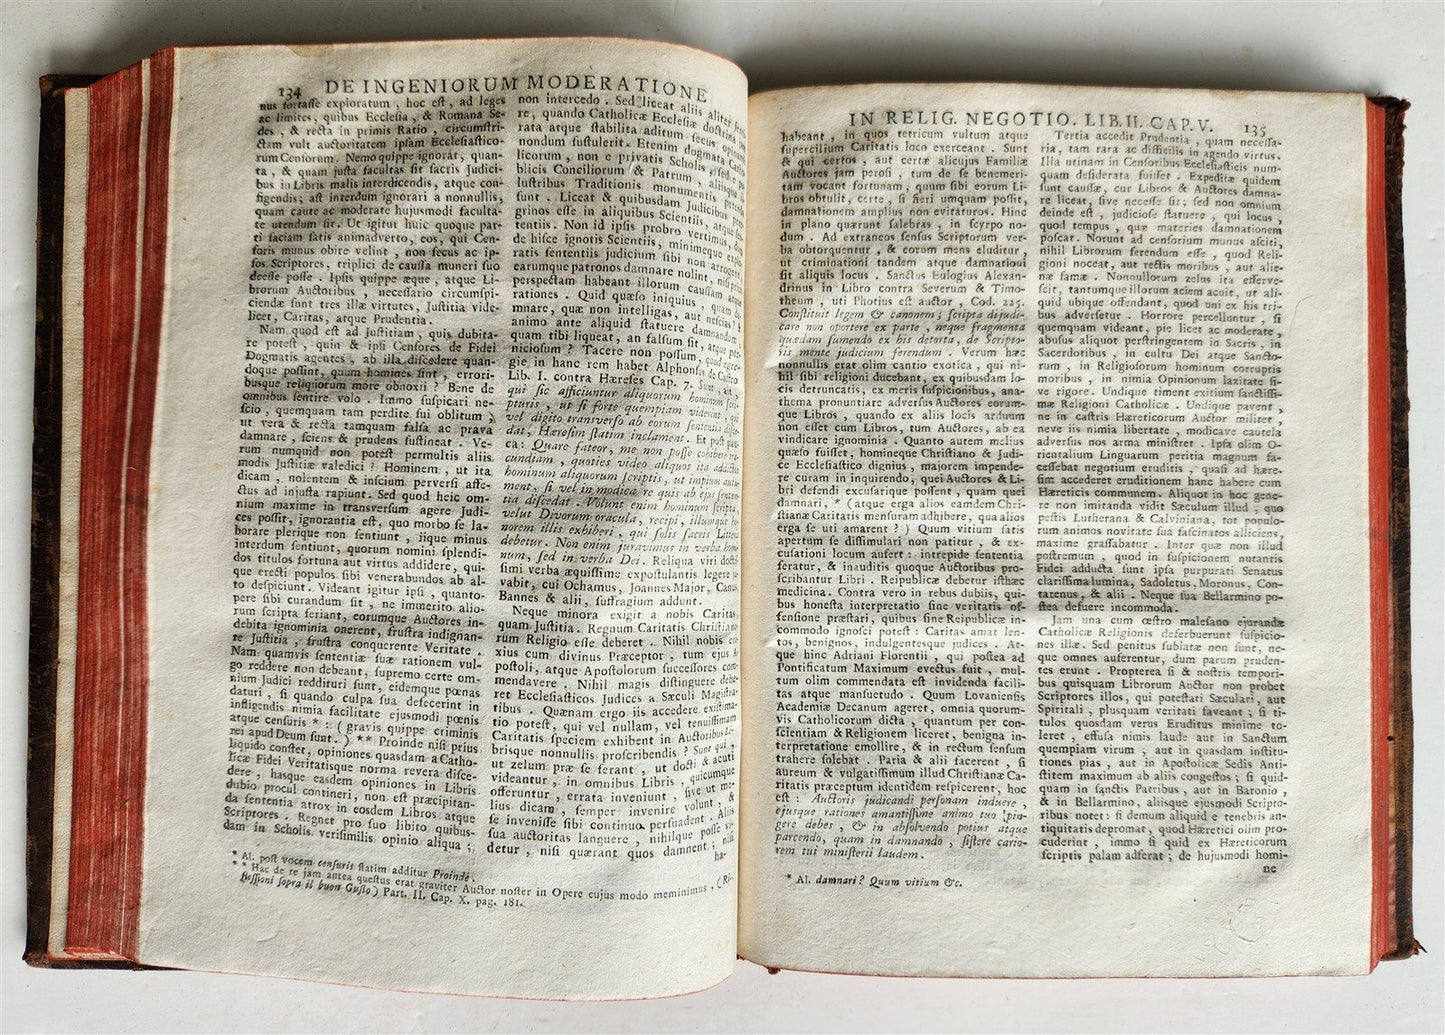 134 DE INGENIORUM MODERATIONE
nus fortasse exploratum , hoc est , ad leges
ac limites, quibus Ecclesia , & Romana Se-
des , & recta in primis Ratio , circumstri-
ctam vult auctoritatem ipsam Ecclesiastico-
rum Censorum. Nemo quippe ignorat, quan-
ta , & quam justa facultas sit sacris Judici-
bus in Libris malis interdicendis, atque con-
figendis; ast interdum ignorari a nonnullis,
quam caute ac moderate hujusmodi faculta-
te utendum sit. Ut igitur huic quoque par-
ti faciam satis animadverto, eos, qui Cen-
soris munus obire velint , non secus ac ip-
sos Scriptores, triplici de caussa muneri suo
deesse posse . Ipsis quippe æque , atque Li-
brorum Auctoribus , necessario circumspi-
ciendæ sunt tres illæ virtutes, Justitia vide-
licet, Caritas, atque Prudentia.
Nam quod est ad Justitiam , quis dubita-
re potest , quin & ipsi Censores de Fidei
Dogmatis agentes , ab illa discedere quan-
doque possint, quum homines sint , errori-
busque reliquiorum more obnoxii ? Bene de
omnibus sentire volo . Immo suspicari ne-
scio , quemquam tam perdite sui oblitum ,
ut vera & recta tamquam falsa ac prava
damnare , sciens & prudens sustineat . Ve-
rum numquid non potest permultis aliis
modis Justitiæ valedici ? Hominem , ut ita
dicam , nolentem & inscium perversi affe-
ctus ad injusta rapiunt. Sed quod heic om-
nium maxime in transversum agere Judi-
ces possit, ignorantia est, quo morbo se la-
borare plerique non sentiunt , iique minus
interdum sentiunt, quorum nomini splendi-
dos titulos fortuna aut virtus addidere, qui-
que erecti populos sibi venerabundos ab al-
to despiciunt. Videant igitur ipsi , quanto-
pere sibi curandum sit , ne immerito alio-
rum scripta feriant, eorumque Auctores in-
debita ignominia onerent, frustra indignan-
te Justitia , frustra conquerente Veritate .
Nam quamvis sententiæ suæ rationem vul-
go reddere non debeant, supremo certe om-
nium Judici reddituri sunt, eidemque pœnas
daturi , si quando culpa sua defecerint in
infligendis nimia facilitate ejusmodi pœnis
atque censuris * : ( gravis quippe criminis
rei apud Deum sunt. ) ** Proinde nisi prius
liquido constet, opiniones quasdam a Catho-
licæ Fidei Veritatisque norma revera disce-
dere , hasque easdem opiniones in Libris
dubio procul contineri, non est præcipitan-
da sententia atrox in eosdem Libros atque
Scriptores . Regnet pro suo libito quibus-
dam in Scholis verisimilis opinio aliqua ;
non intercedo . Sed liceat aliis aliter
re, quando Catholicæ Ecclesiæ doctrina
rata atque stabilita aditum secus
nondum sustulerit. Etenim dogmata Catho-
licorum , non e privatis Scholis , sed e pu-
blicis Conciliorum & Patrum , aliisque
lustribus Traditionis monumentis petenda
sunt . Liceat & quibusdam Judicibus
grinos esse in aliquibus Scientiis, atque
tentiis. Non id ipsis probro vertimus,
de hisce ignotis Scientiis, minimeque
ratis sententiis judicium sibi non arrogent,
earumque patronos damnare nolint, nisi prius
perspectam habeant illorum caussam atque
rationes . Quid quæso iniquius , quam
mnare, quæ non intelligas, aut nescias?
animo ante aliquid statuere damnandum,
quam tibi liqueat, an falsum sit, atque per-
niciosum ? Tacere non possum, quod egre-
gie in hanc rem habet Alphonsus de Castro
Lib. I. contra Hæreses Cap. 7. Sunt , ait ,
qui sic afficiuntur aliquorum hominum scri-
pturis , ut si forte quempiam viderint , qui
vel digito transverso ab eorum sententiis disce-
dat, Hæresim statim inclament. Et post pau-
ca: Quare fateor, me non posse cohibere ira-
cundiam , quoties video aliquos ita addictos
hominum aliquorum scriptis, ut impium autu-
ment, si vel in modica re quis ab ejus senten-
tia discedat . Volunt enim hominum scripta,
velut Divorum oracula, recipi, illumque ho-
norem illis exhiberi , qui solis sacris Litteris
debetur. Non enim juravimus in verba homi-
num, sed in verba Dei. Reliqua viri doctis-
simi verba æquissime expostulantis legere ju-
vabit, cui Ochamus, Joannes Major, Canus,
Bannes & alii, suffragium addunt.
Neque minora exigit a nobis Caritas,
quam Justitia. Regnum Caritatis Christiano-
rum Religio esse deberet . Nihil nobis cre-
xius cum divinus Præceptor , tum ejus A-
postoli, atque Apostolorum successores com-
mendavere . Nihil magis distinguere debe-
ret Ecclesiasticos Judices a Sæculi Magistra-
tibus . Quænam ergo iis accedere existima-
tio potest, qui vel nullam, vel tenuissimam
Caritatis speciem exhibent in Auctoribus Li-
brisque nonnullis proscribendis ? Sunt qui ,
ut zelum præ se ferant , ut docti & acuti
videantur , in omnibus Libris , quicumque
offeruntur , errata inveniunt , sive ut me-
lius dicam , semper invenire volunt , &
se invenisse sibi continuo persuadent . Aliis
sua auctoritas languere , nihilque posse vi-
detur , nisi quærant quos damnent ; nisi
ha-
* Al. post vocem censuris statim additur Proinde.
** Hac de re jam antea questus erat graviter Auctor noster in Opere cujus modo meminimus , ( Ri-
flessioni sopra il buon Gusto) Part. II. Cap. X. pag. 181.
IN RELIG. NEGOTIO. LIB. II. CAP. V. 135
habeant , in quos tetricum vultum atque
supercilium Caritatis loco exerceant . Sunt
& qui certos , aut certæ alicujus Familiæ
Auctores jam perosi , tum de se benemeri-
tam vocant fortunam, quum sibi eorum Li-
bros obtulit, certe , si fieri umquam possit,
damnationem amplius non evitaturos. Hinc
in plano quærunt salebras , in scyrpo no-
dum . Ad extraneos sensus Scriptorum ver-
ba obtorquentur , & eorum mens eluditur ,
ut criminationi tandem atque damnationi
sit aliquis locus . Sanctus Eulogius Alexan-
drinus in Libro contra Severum & Timo-
theum , uti Photius est auctor , Cod. 225.
Constituit legem & canonem; scripta dijudi-
care non oportere ex parte , neque fragmenta
quædam sumendo ex his detorta, de Scripto-
riis mente judicium ferendum . Verum hæc
nonnullis erat olim cantio exotica , qui ni-
hil sibi religioni ducebant, ex quibusdam lo-
cis detruncatis, ex meris suspicionibus, ana-
thema pronuntiare adversus Auctores eorum-
que Libros , quando ex aliis locis arduum
non esset cum Libros, tum Auctores, ab ea
vindicare ignominia . Quanto autem melius
quæso fuisset, homineque Christiano & Judi-
ce Ecclesiastico dignius , majorem impende-
re curam in inquirendo, quei Auctores & Li-
bri defendi excusarique possent , quam quei
damnari, * (atque erga alios eamdem Chri-
stianæ Caritatis mensuram adhibere, qua alios
erga se uti amarent ? ) Quum vitium satis
apertum se dissimulari non patitur , & ex-
cusationi locum aufert : intrepide sententia
feratur, & inauditis quoque Auctoribus pro-
scribantur Libri . Reipublicæ debetur isthæc
medicina. Contra vero in rebus dubiis, qui-
bus honesta interpretatio sine veritatis of-
fensione præstari, quibus sine Reipublicæ in-
commodo ignosci potest : Caritas amat len-
tos, benignos, indulgentesque judices . At-
que hinc Adriani Florentii , qui postea ad
Pontificatum Maximum evectus fuit , mul-
tum olim commendata est invidenda facili-
tas atque mansuetudo . Quum Lovaniensis
Academiæ Decanum ageret, omnia quorum-
vis Catholicorum dicta , quantum per con-
scientiam & Religionem liceret, benigna in-
terpretatione emollire, & in rectum sensum
trahere solebat . Paria & alii facerent , si
aureum & vulgatissimum illud Christianæ Ca-
ritatis præceptum identidem respicerent, hoc
est : Auctoris judicandi personam induere ,
ejusque rationes amantissime animo tuo pin-
gere debes , & in absolvendo potius atque
parcendo, quam in damnando , sistere cario-
rem tui ministerii laudem.
* Al. damnari? Quum vitium &c.
Tertia accedit Prudentia , quam necessa-
ria, tam rara ac difficilis in agendo virtus.
Illa utinam in Censoribus Ecclesiasticis num-
quam desiderata fuisset . Expeditæ quidem
sunt caussæ, cur Libros & Auctores damna-
re liceat, sive necesse sit; sed non omnium
deinde est , judiciose statuere , qui locus ,
quod tempus , quæ materies damnationem
poscat. Norunt ad censorium munus asciti,
nihil Librorum ferendum esse , quod Reli-
gioni noceat, aut rectis moribus , aut alie-
næ famæ . Nonnullorum zelus ita efferve-
scit, tantumque illorum aciem acuit, ut ali-
quid ubique offendant, quod uni ex his tri-
bus adversetur . Horrore percelluntur , si
quemquam videant, pie licet ac moderate ,
abusus aliquot perstringentem in Sacris , in
Sacerdotibus , in cultu Dei atque Sancto-
rum , in Religiosorum hominum corruptis
moribus , in nimia Opinionum laxitate si-
ve rigore. Undique timent exitium sanctissi-
mæ Religioni Catholicæ . Undique pavent ,
ne in castris Hæreticorum Auctor militet ,
neve iis nimia libertate , modicave cautela
adversus nos arma ministret . Ipsa olim O-
rientalium Linguarum peritia magnum fa-
cessebat negotium eruditis , quasi ad hære-
sim accederet eruditionem hanc habere cum
Hæreticis communem. Aliquot in hoc gene-
re non imitanda vidit Sæculum illud , quo
pestis Lutherana & Calviniana, tot populo-
rum animos novitate sua fascinatos alliciens,
maxime grassabatur . Inter quæ non illud
postremum , quod in suspicionem nutantis
Fidei adducta sunt ipsa purpurati Senatus
clarissima lumina, Sadoletus, Moronus, Con-
tarenus, & alii . Neque sua Bellarmino po-
stea defuere incommoda.
Jam una cum œstro malesano ejurandæ
Catholicæ Religionis deferbuerunt suspicio-
nes illæ. Sed penitus sublatæ non sunt, ne-
que omnes auferentur, dum parum pruden-
tes erunt . Propterea si & nostris tempori-
bus quisquam Librorum Auctor non probet
Scriptores illos, qui potestati Sæculari, aut
Spiritali , plusquam veritati faveant ; si ti-
tulos quosdam verus Eruditus minime to-
leret , effusa nimis laude aut in Sanctum
quempiam virum , aut in quasdam institu-
tiones pias , aut in Apostolicæ Sedis Anti-
stitem maximum ab aliis congestos ; si quid-
quam in sanctis Patribus , aut in Baronio ,
& in Bellarmino, aliisque ejusmodi Scripto-
ribus notet: si demum aliquid e tenebris an-
tiquitatis depromat, quod Hæretici olim pro-
cuderint , immo si quid ex Hæreticorum
scriptis palam adferat ; de hujusmodi homi-
ne